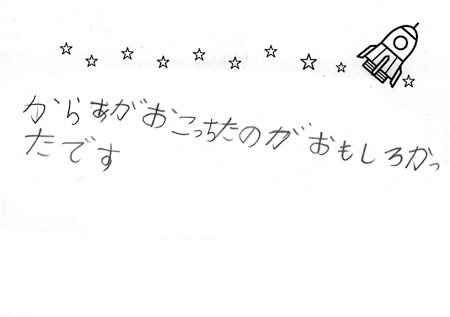 からあがおこっちたのがおもしろかっ
たです